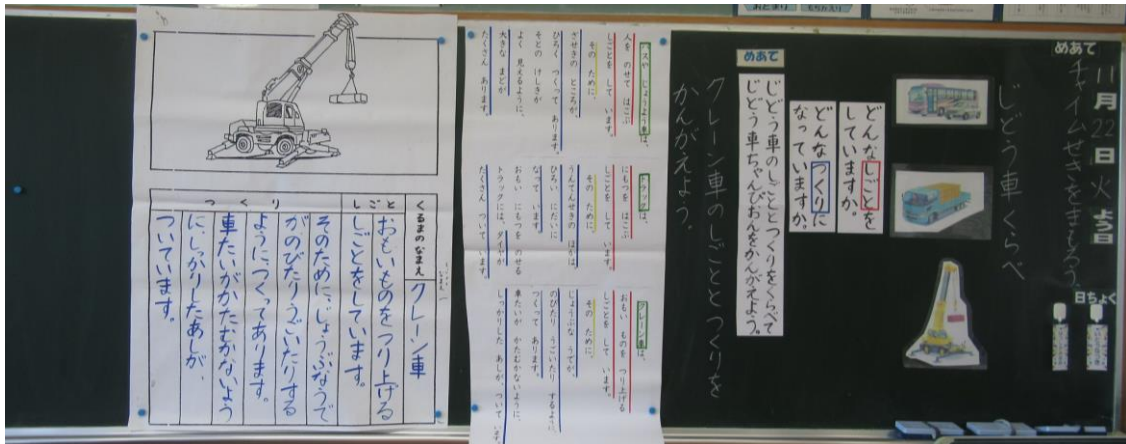 11月22日火よう日
日ちょく
めあて
チャイムせきをまもろう。
じどう車くらべ
どんなしごとを
していますか。
どんなつくりに
なっていますか。
めあて
じどう車のしごととつくりをくらべて
じどう車ちゃんぴおんをかんがえよう。
クレーン車のしごととつくりを
かんがえよう。
バスや じょうよう車は、
人を のせて はこぶ
しごとを して います。
その ために、
ざせきの ところが、
ひろく つくって あります。
そとの けしきが
よく 見えるように、
大きな まどが
たくさん あります。
トラックは、
にもつを はこぶ
しごとを して います。
その ために、
うんてんせきの ほかは、
ひろい にだいに
なって います。
おもい にもつを のせる
トラックには、タイヤが
たくさん ついて います。
クレーン車は、
おもい ものを つり上げる
しごとを して います。
その ために、
じょうぶな うでが、
のびたり うごいたり するように、
つくって あります。
車たいが かたむかないように、
しっかりした あしが、ついて います。
なまえ
くるまのなまえ
クレーン車
しごと
おもいものをつり上げる
しごとをしています。
つくり
そのために、じょうぶなうで
がのびたりうごいたりする
ようにつくってあります。
車たいがかたむかないよう
に、しっかりしたあしが、
ついています。